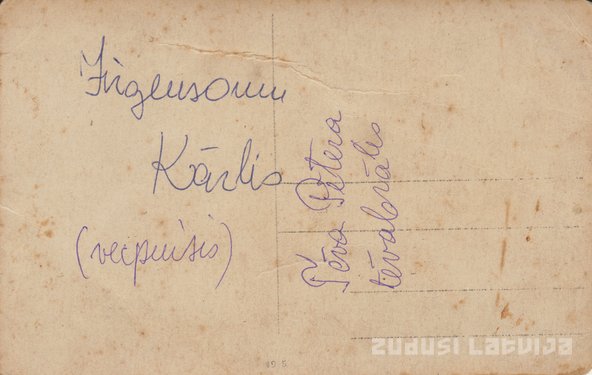 Jirgensonu
Kārlis
(vecpuisis)
Tēva Pētera
tēvabrālis
ZUDUSI LATVIJA